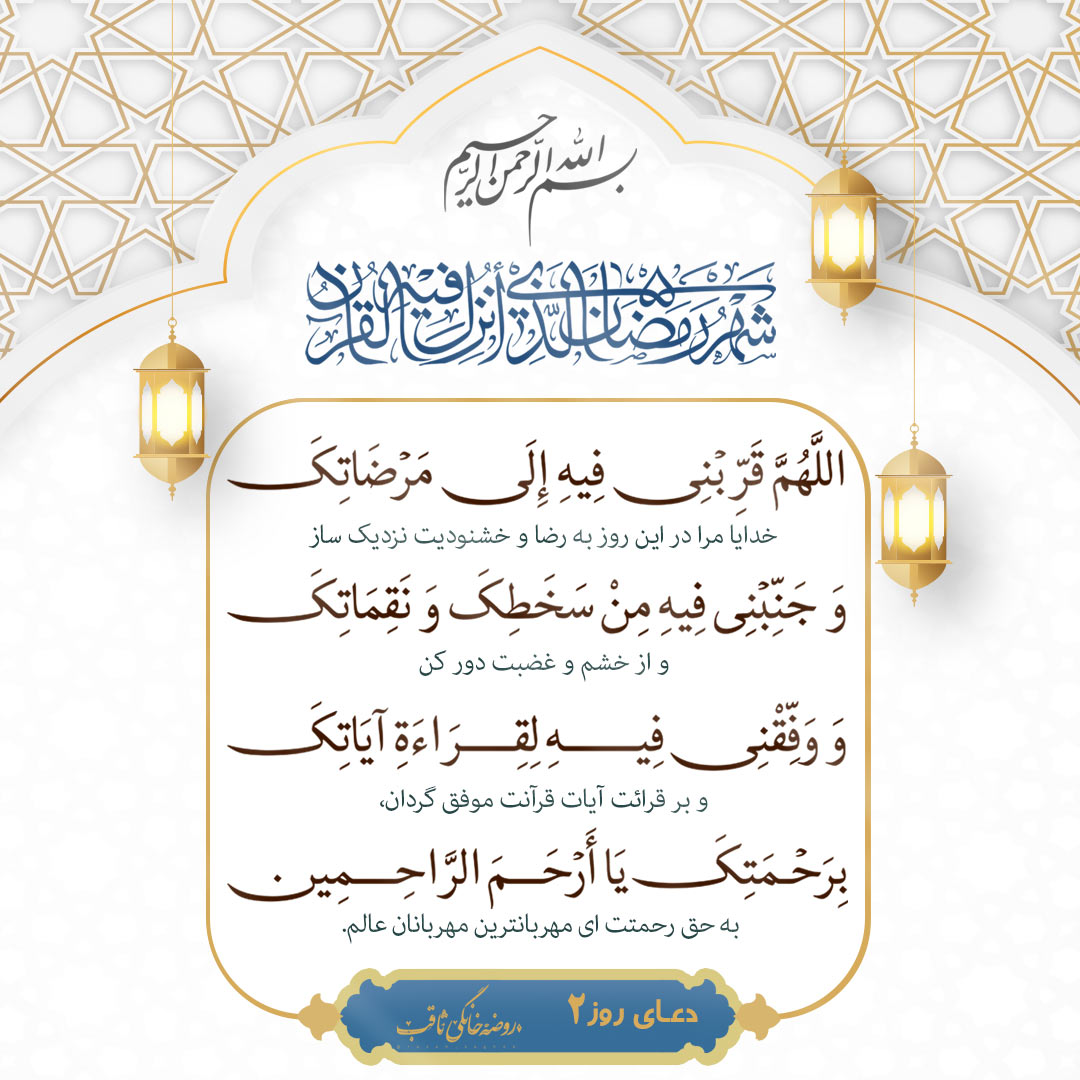 بسم الله الرحمن الرحیم
شهر رمضان الذي أنزل فيه القرآن
اللَّهُمَّ قَرِّبْنِی فِیهِ إِلَی مَرْضَاتِکَ
خدایا مرا در این روز به رضا و خشنودیت نزدیک ساز
وَ جَنِّبْنِی فِیهِ مِنْ سَخَطِکَ وَ نَقِمَاتِکَ
و از خشم و غضبت دور کن
وَ وَفِّقْنِی فِیهِ لِقِرَاءَةِ آیَاتِکَ
و بر قرائت آیات قرآنت موفق گردان،
بِرَحْمَتِکَ یَا أَرْحَمَ الرَّاحِمِین.
به حق رحمتت ای مهربانترین مهربانان عالم.
دعای روز ۲
روضه خانگی ثاقب